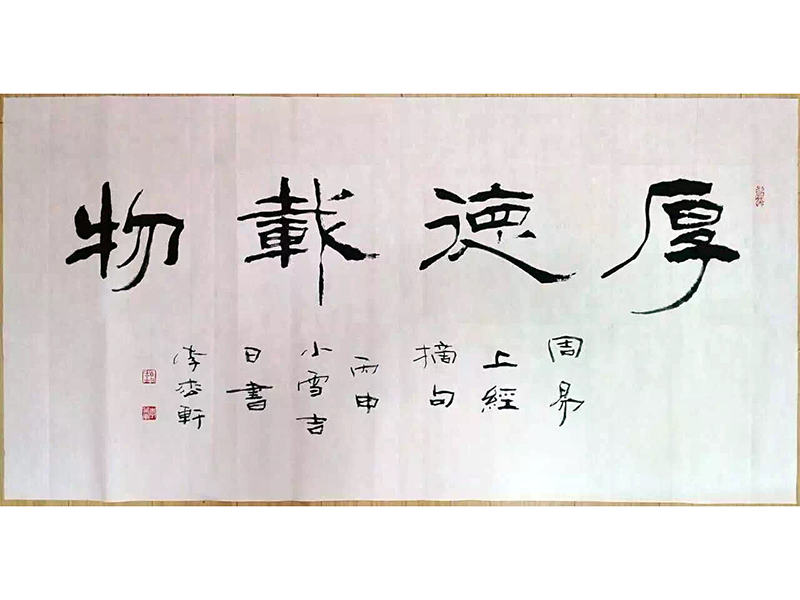 厚德載物
周易
上經
摘句
丙申
小雪吉
日書
李杏軒